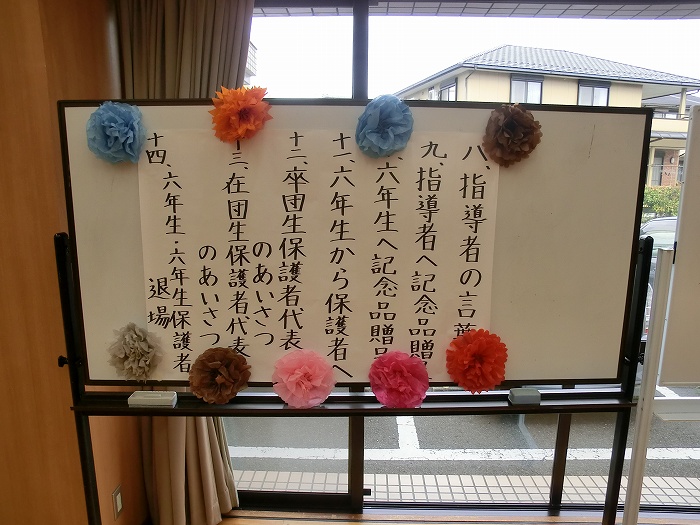 八、指導者の言葉
九、指導者へ記念品贈
、六年生へ記念品贈呈
十一、六年生から保護者へ
十二、卒団生保護者代表
のあいさつ
十三、在団生保護者代表
のあいさつ
十四、六年生・六年生保護者
退場